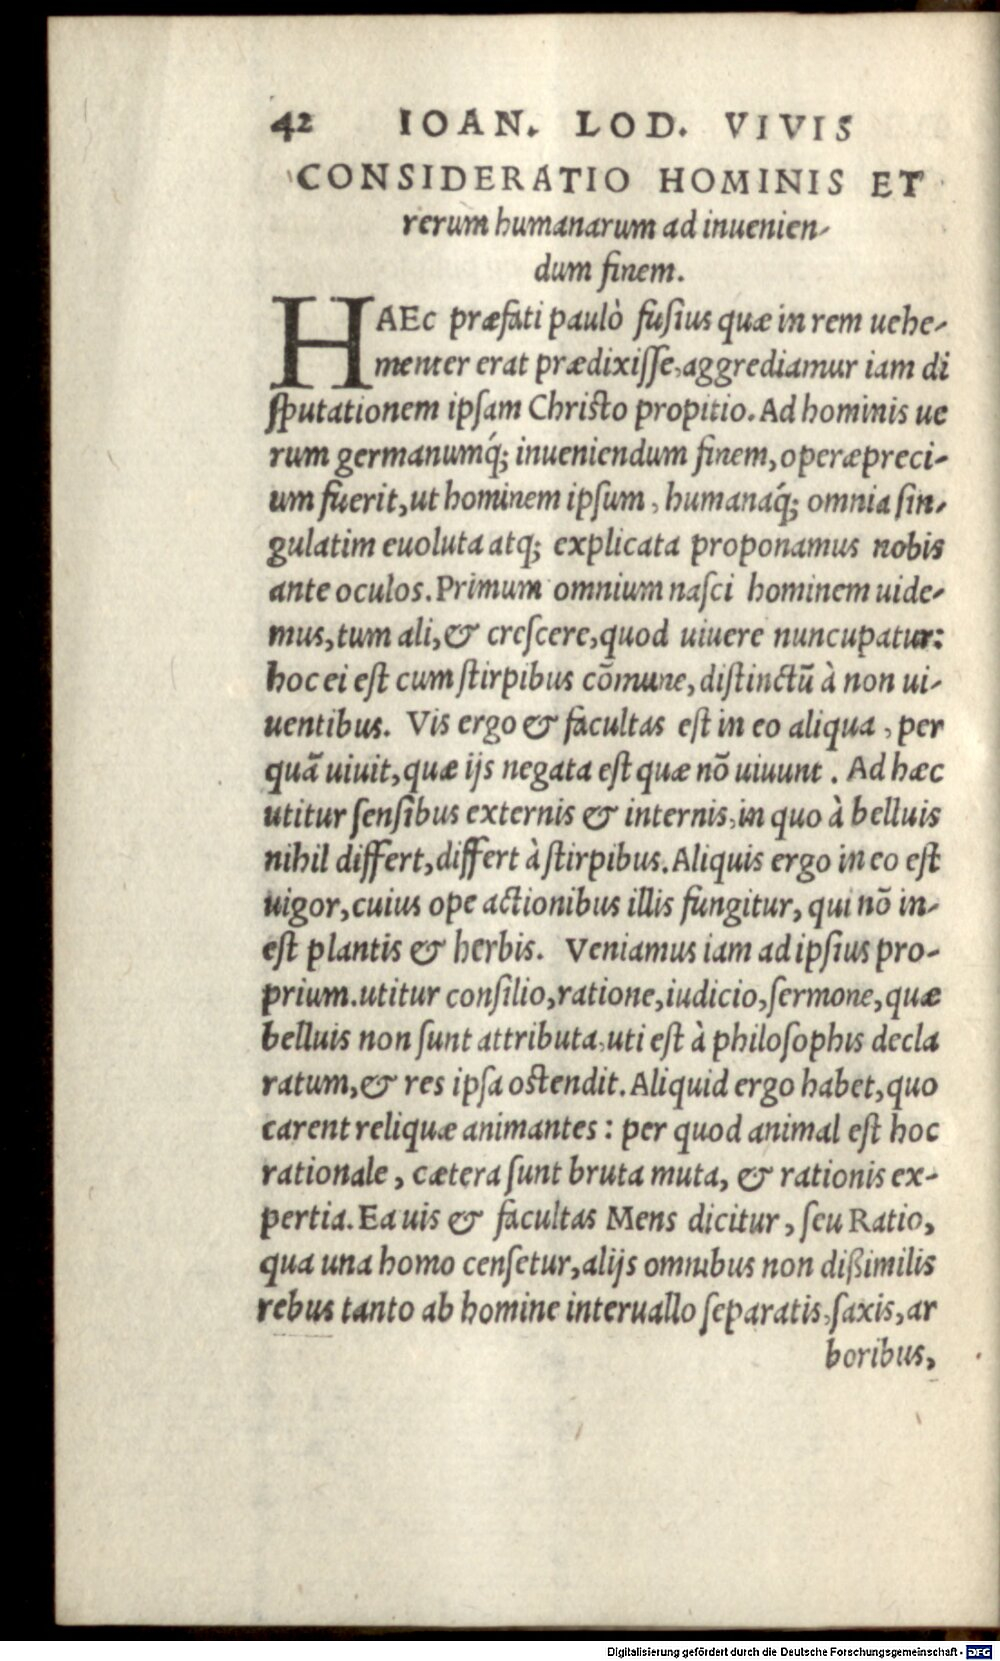 42 IOAN. LOD. VIVIS
CONSIDERATIO HOMINIS ET
rerum humanarum ad inuenien-
dum finem.
HAEc præfati paulò fusius quæ in rem uehe-
menter erat prædixisse, aggrediamur iam di
sputationem ipsam Christo propitio. Ad hominis ue
rum germanumq́; inueniendum finem, operæpreci-
um fuerit, ut hominem ipsum, humanaq́; omnia sin-
gulatim euoluta atq; explicata proponamus nobis
ante oculos. Primum omnium nasci hominem uide-
mus, tum ali, & crescere, quod uiuere nuncupatur:
hoc ei est cum stirpibus cōmune, distinctū à non ui-
uentibus. Vis ergo & facultas est in eo aliqua, per
quā uiuit, quæ ijs negata est quæ nō uiuunt. Ad hæc
utitur sensibus externis & internis, in quo à belluis
nihil differt, differt à stirpibus. Aliquis ergo in eo est
uigor, cuius ope actionibus illis fungitur, qui nō in-
est plantis & herbis. Veniamus iam ad ipsius pro-
prium. utitur consilio, ratione, iudicio, sermone, quæ
belluis non sunt attributa, uti est à philosophis decla
ratum, & res ipsa ostendit. Aliquid ergo habet, quo
carent reliquæ animantes: per quod animal est hoc
rationale, cætera sunt bruta muta, & rationis ex-
pertia. Ea uis & facultas Mens dicitur, seu Ratio,
qua una homo censetur, alijs omnibus non dißimilis
rebus tanto ab homine interuallo separatis, saxis, ar
boribus,
Digitalisierung gefördert durch die Deutsche Forschungsgemeinschaft - DFG